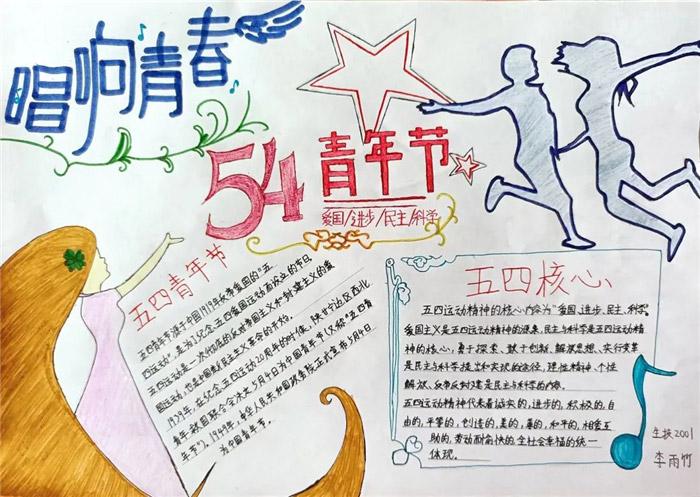 唱响青春
54青年节
爱国/进步/民主/科学
五四青年节
五四青年节源于中国1919年反帝爱国的"五
四运动",是为了纪念五四爱国运动而设立的节日
五四运动是一次彻底的反对帝国主义和封建主义的爱
国运动,也是中国新民主主义革命的开始。
1939年,在纪念五四运动20周年的时候,陕甘宁边区西北
青年救国联合会决定5月4日为中国青年节(又称"五四青
年节")。1949年,中华人民共和国政务院正式宣布5月4日
为中国青年节。
五四核心
五四运动精神的核心内容为"爱国、进步、民主、科学。
爱国主义是五四运动精神的源泉,民主与科学是五四运动精
神的核心,勇于探索、敢于创新、解放思想、实行变革
是民主与科学提出和实现的途径,理性精神、个性
解放、反帝反封建是民主与科学的内容。
五四运动精神代表着诚实的,进步的,积极的,自
由的,平等的,创造的,美的,善的,和平的,相爱互
助的,劳动而愉快的,全社会幸福的统一
体现。
生技2001
李雨竹